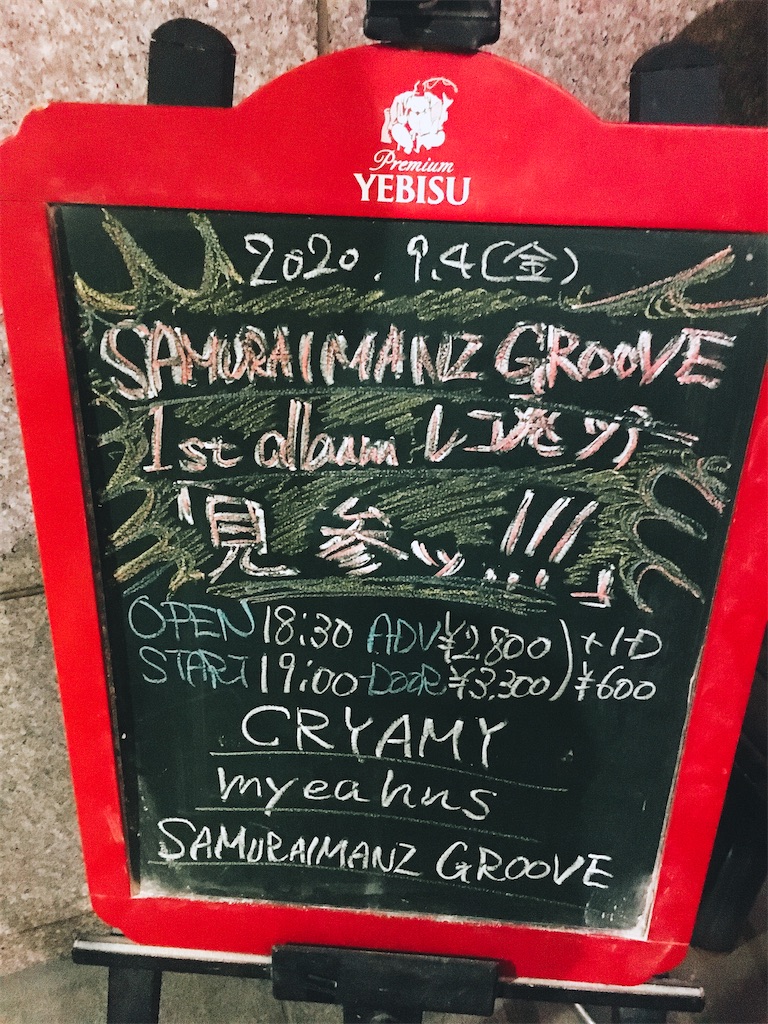 Premium
YEBISU
2020. 9.4(金)
SAMURAIMANZ GROOVE
1st album レコ発ツアー
「見参ッ...!!!」
OPEN 18:30 ADV ¥2,800 ) +1D
START 19:00 DOOR ¥3,300 ) ¥600
CRYAMY
myeahns
SAMURAIMANZ GROOVE